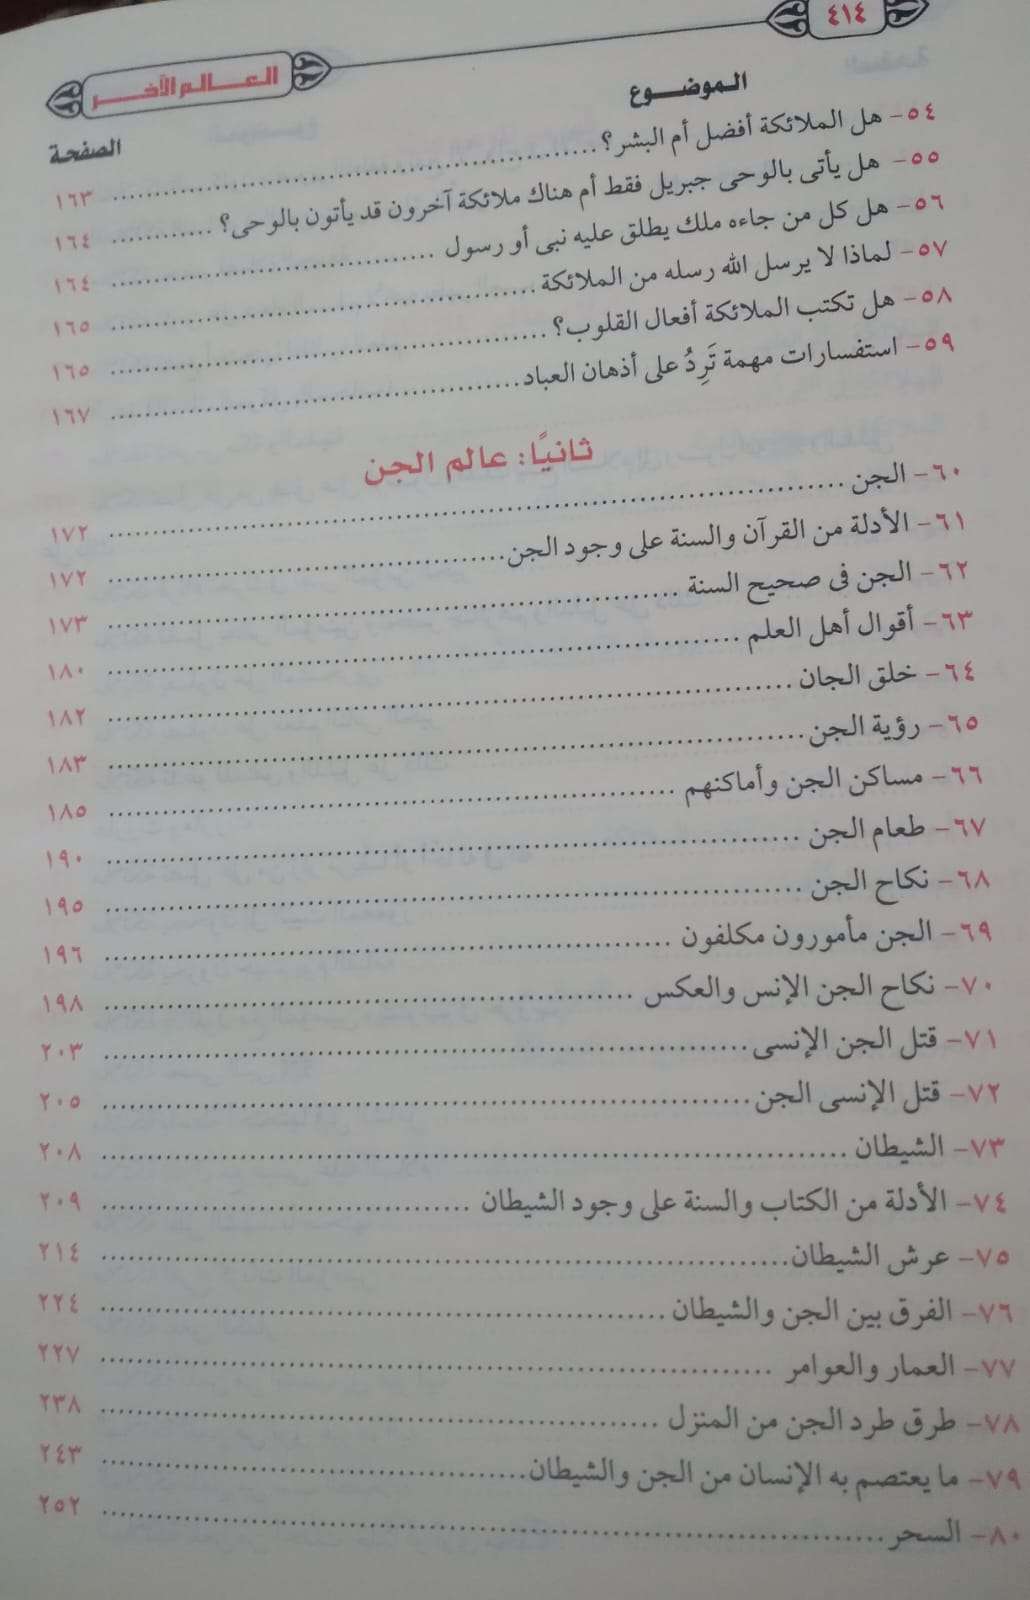 ٤١٤
العالم الآخر
الموضوع
الصفحة
٥٤- هل الملائكة أفضل أم البشر؟ ١٦٣
٥٥- هل يأتى بالوحى جبريل فقط أم هناك ملائكة آخرون قد يأتون بالوحى؟ ١٦٤
٥٦- هل كل من جاءه ملك يطلق عليه نبى أو رسول ١٦٤
٥٧- لماذا لا يرسل الله رسله من الملائكة ١٦٥
٥٨- هل تكتب الملائكة أفعال القلوب؟ ١٦٥
٥٩- استفسارات مهمة تَرِدُ على أذهان العباد ١٦٧
ثانيًا: عالم الجن
٦٠- الجن ١٧٢
٦١- الأدلة من القرآن والسنة على وجود الجن ١٧٢
٦٢- الجن فى صحيح السنة ١٧٣
٦٣- أقوال أهل العلم ١٨٠
٦٤- خلق الجان ١٨٢
٦٥- رؤية الجن ١٨٣
٦٦- مساكن الجن وأماكنهم ١٨٥
٦٧- طعام الجن ١٩٠
٦٨- نكاح الجن ١٩٥
٦٩- الجن مأمورون مكلفون ١٩٦
٧٠- نكاح الجن الإنس والعكس ١٩٨
٧١- قتل الجن الإنسى ٢٠٣
٧٢- قتل الإنسى الجن ٢٠٥
٧٣- الشيطان ٢٠٨
٧٤- الأدلة من الكتاب والسنة على وجود الشيطان ٢٠٩
٧٥- عرش الشيطان ٢١٤
٧٦- الفرق بين الجن والشيطان ٢٢٤
٧٧- العمار والعوامر ٢٢٧
٧٨- طرق طرد الجن من المنزل ٢٣٨
٧٩- ما يعتصم به الإنسان من الجن والشيطان ٢٤٣
٨٠- السحر ٢٥٢